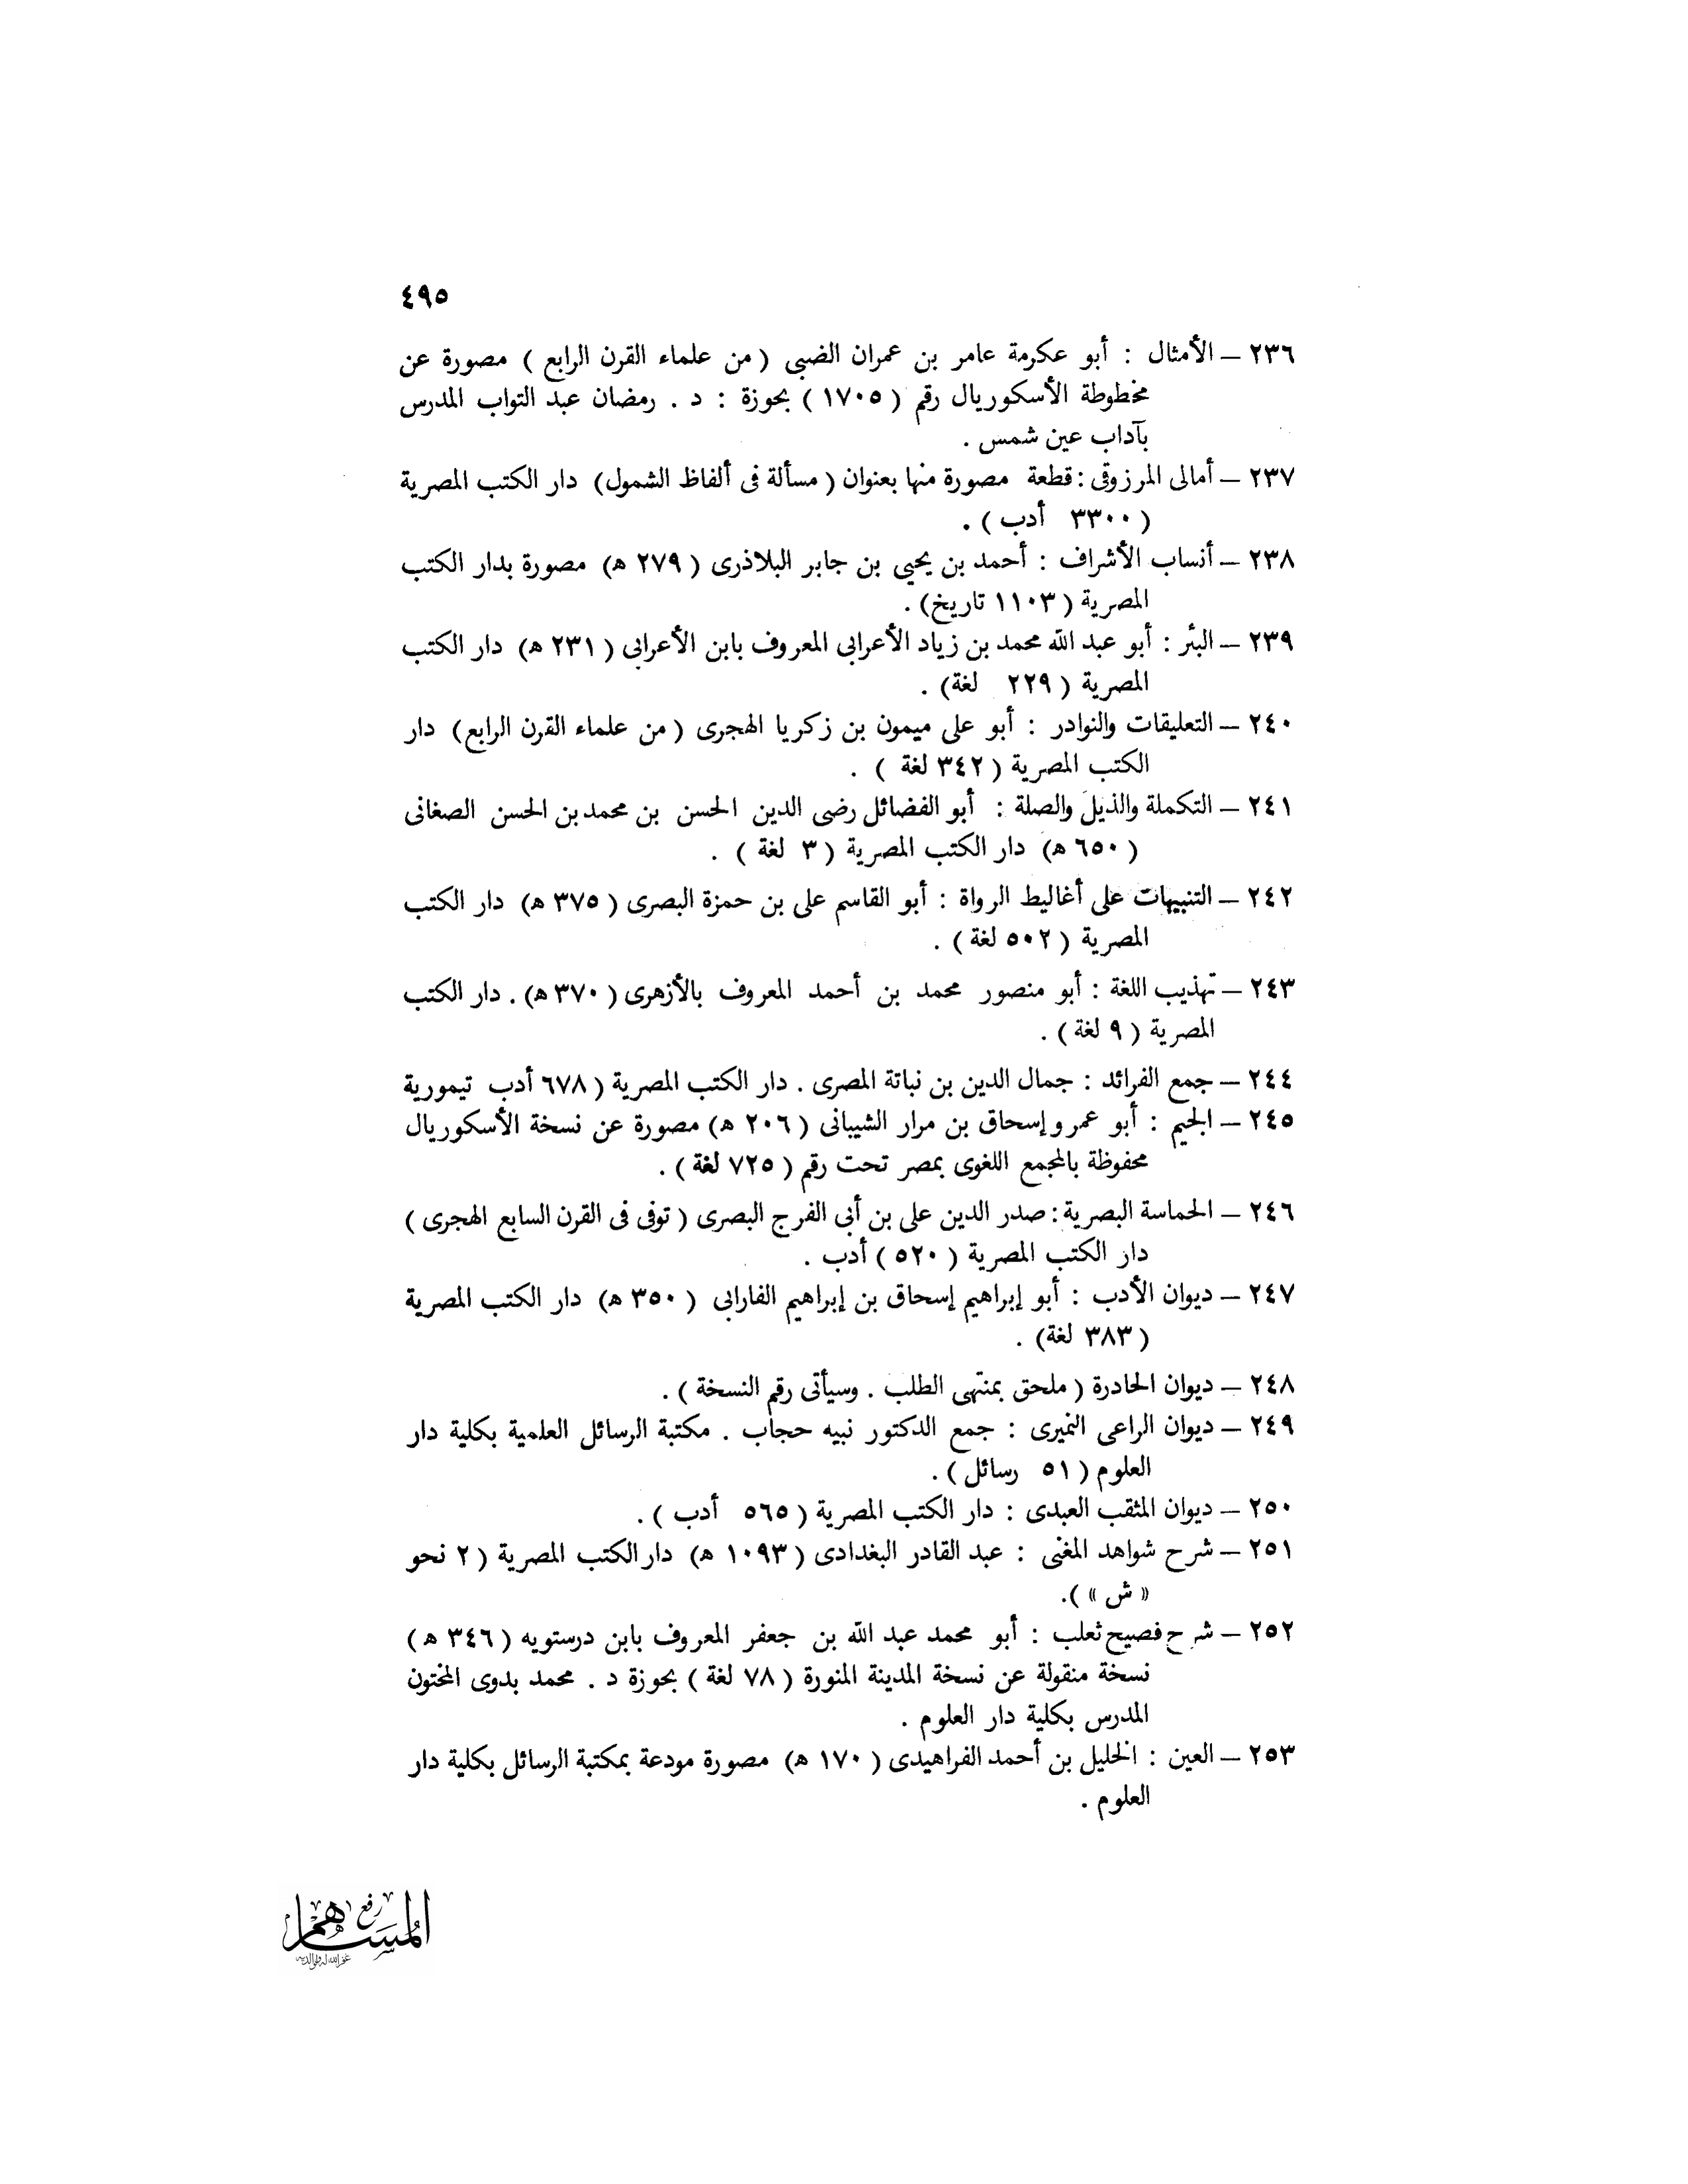 ٤٩٥
٢٣٦ – الأمثال : أبو عكرمة عامر بن عمران الضبى ( من علماء القرن الرابع ) مصورة عن
مخطوطة الأسكوريال رقم ( ١٧٠٥ ) بحوزة : د . رمضان عبد التواب المدرس
بآداب عين شمس .
٢٣٧ – أمالى المرزوقى : قطعة مصورة منها بعنوان ( مسألة فى ألفاظ الشمول ) دار الكتب المصرية
( ٣٣٠٠ أدب ) .
٢٣٨ – أنساب الأشراف : أحمد بن يحيى بن جابر البلاذرى ( ٢٧٩ ﻫ ) مصورة بدار الكتب
المصرية ( ١١٠٣ تاريخ ) .
٢٣٩ – البئر : أبو عبد الله محمد بن زياد الأعرابى المعروف بابن الأعرابى ( ٢٣١ ﻫ ) دار الكتب
المصرية ( ٢٢٩ لغة ) .
٢٤٠ – التعليقات والنوادر : أبو على ميمون بن زكريا الهجرى ( من علماء القرن الرابع ) دار
الكتب المصرية ( ٣٤٢ لغة ) .
٢٤١ – التكملة والذيل والصلة : أبو الفضائل رضى الدين الحسن بن محمد بن الحسن الصغانى
( ٦٥٠ ﻫ ) دار الكتب المصرية ( ٣ لغة ) .
٢٤٢ – التنبيهات على أغاليط الرواة : أبو القاسم على بن حمزة البصرى ( ٣٧٥ ﻫ ) دار الكتب
المصرية ( ٥٠٢ لغة ) .
٢٤٣ – تهذيب اللغة : أبو منصور محمد بن أحمد المعروف بالأزهرى ( ٣٧٠ ﻫ ) . دار الكتب
المصرية ( ٩ لغة ) .
٢٤٤ – جمع الفرائد : جمال الدين بن نباتة المصرى . دار الكتب المصرية ( ٦٧٨ أدب تيمورية
٢٤٥ – الجيم : أبو عمرو إسحاق بن مرار الشيبانى ( ٢٠٦ ﻫ ) مصورة عن نسخة الأسكوريال
محفوظة بالمجمع اللغوى بمصر تحت رقم ( ٧٢٥ لغة ) .
٢٤٦ – الحماسة البصرية : صدر الدين على بن أبى الفرج البصرى ( توفى فى القرن السابع الهجرى )
دار الكتب المصرية ( ٥٢٠ ) أدب .
٢٤٧ – ديوان الأدب : أبو إبراهيم إسحاق بن إبراهيم الفارابى ( ٣٥٠ ﻫ ) دار الكتب المصرية
( ٣٨٣ لغة ) .
٢٤٨ – ديوان الحادرة ( ملحق بمنتهى الطلب . وسيأتى رقم النسخة ) .
٢٤٩ – ديوان الراعى النميرى : جمع الدكتور نبيه حجاب . مكتبة الرسائل العلمية بكلية دار
العلوم ( ٥١ رسائل ) .
٢٥٠ – ديوان المثقب العبدى : دار الكتب المصرية ( ٥٦٥ أدب ) .
٢٥١ – شرح شواهد المغنى : عبد القادر البغدادى ( ١٠٩٣ ﻫ ) دار الكتب المصرية ( ٢ نحو
« ش » ) .
٢٥٢ – شرح فصيح ثعلب : أبو محمد عبد الله بن جعفر المعروف بابن درستويه ( ٣٤٦ ﻫ )
نسخة منقولة عن نسخة المدينة المنورة ( ٧٨ لغة ) بحوزة د . محمد بدوى المختون
المدرس بكلية دار العلوم .
٢٥٣ – العين : الخليل بن أحمد الفراهيدى ( ١٧٠ ﻫ ) مصورة مودعة بمكتبة الرسائل بكلية دار
العلوم .
رفع
المساهم
غفر الله له ولوالديه